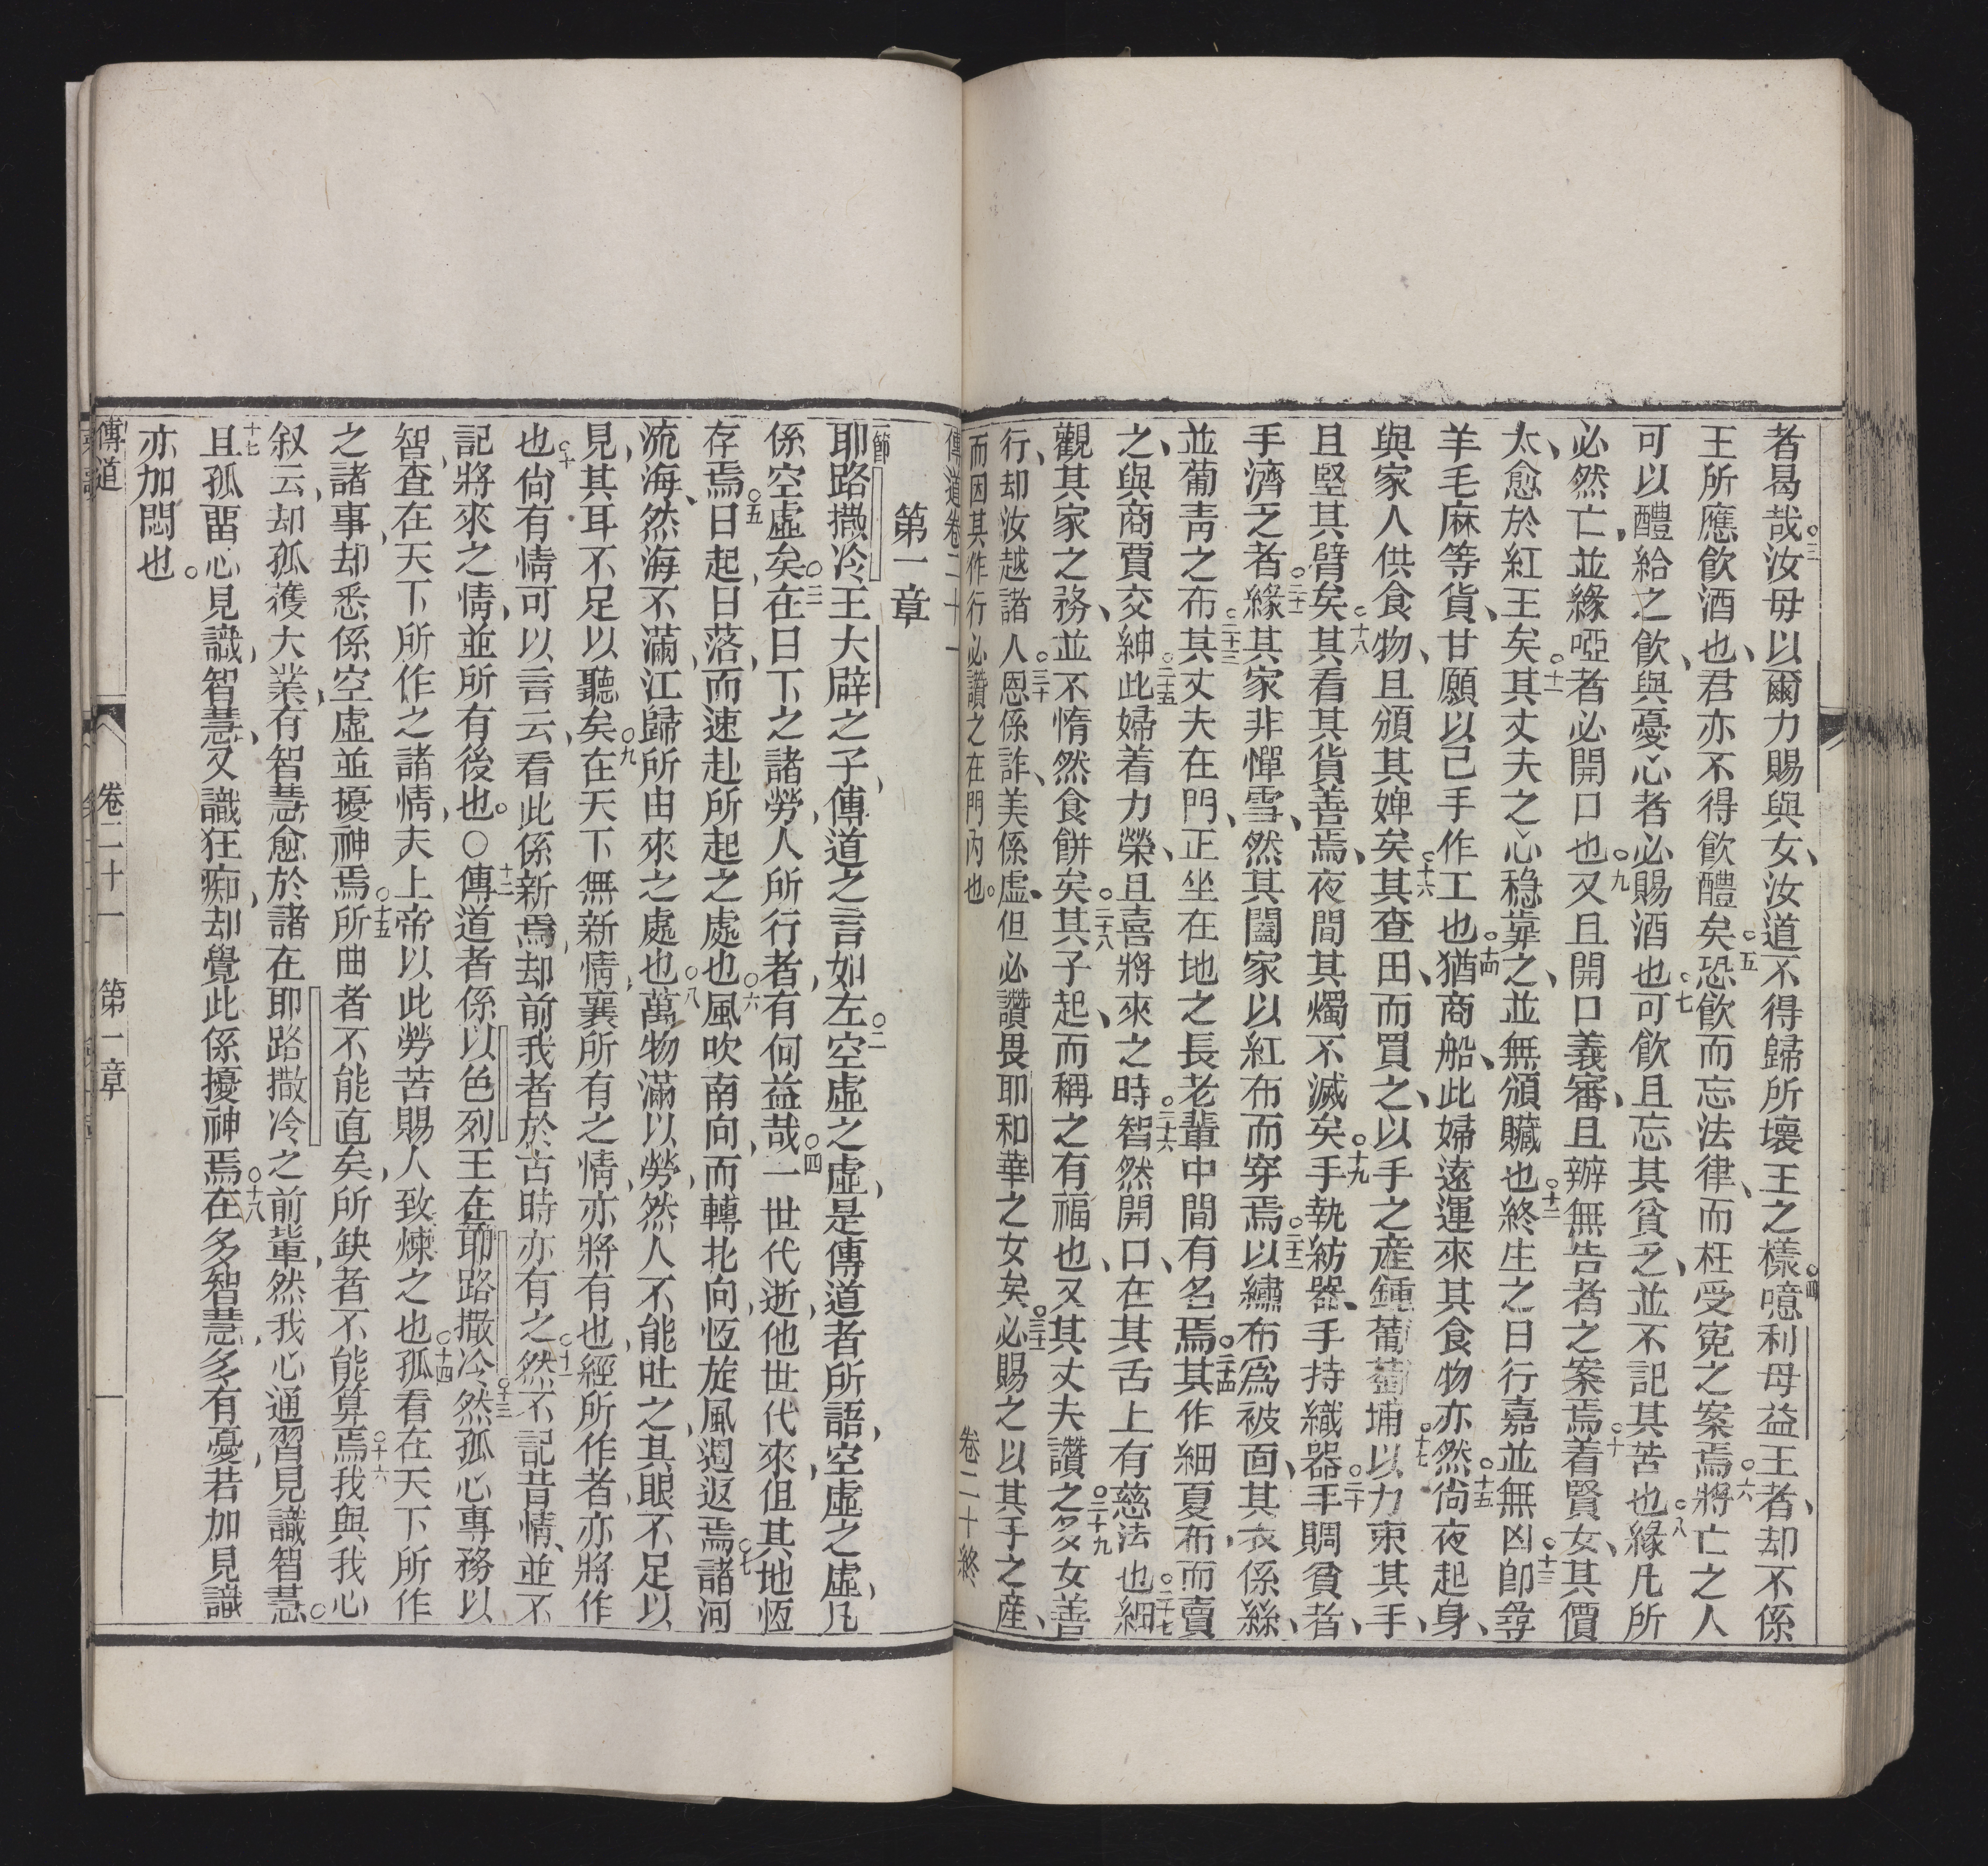 者曷哉○三汝毋以爾力賜與女、汝道不得歸所壞王之樣○四噫利母益王者、却不係
王所應飲酒也、君亦不得飲醴矣○五恐飲而忘法律、而枉受寃之案焉○六將亡之人
可以醴給之飲、與憂心者必賜酒也○七可飲且忘其貧乏、並不記其苦也○八緣凡所
必然亡、並緣啞者必開口也○九又且開口義審、且辦無告者之案焉○十着賢女、其價
太、愈於紅玉矣○十一其丈夫之心穩靠之、並無頒贜也○十二終生之日行嘉並無凶卽○十三尋
羊毛麻等貨、甘願以己手作工也○十四猶商船、此婦遠運來其食物亦然○十五尚夜起身、
與家人供食物、且頒其婢矣○十六其查田、而買之、以手之產鍾葡萄埔○十七以力束其手、
且堅其臂矣○十八其看其貨善焉、夜間其燭不滅矣○十九手執紡器、手持織器○二十手賙貧者、
手濟乏者○二十一緣其家非憚雪、然其闔家以紅布而穿焉○二十二以繡布爲被面、其衣係絲、
並葡青之布○二十三其丈夫在門、正坐在地之長老輩中間有名焉○二十四其作細夏布、而賣
之、與商賈交紳○二十五此婦着力榮、且喜將來之時○二十六智然開口、在其舌上有慈法也○二十七細
觀其家之務、並不惰然食餅矣○二十八其子起、而稱之有福也、又其丈夫讚之○二十九多女善
行、却汝越諸人○三十恩係詐、美係虛、但必讚畏耶和華之女矣○三十一必賜之以其手之產、
而因其作行必讚之在門內也。
卷二十終
傳道卷二十一
第一章
一節耶路撒冷王大辟之子、傳道之言如左○二空虛之虛、是傳道者所語、空虛之虛、凡
係空虛矣○三在日下之諸勞、人所行者、有何益哉○四一世代逝、他世代來、但其地恆
存焉○五日起、日落、而速赴所起之處也○六風吹南向、而轉北向、恆旋風週返焉○七諸河
流海、然海不滿、江歸所由來之處也○八萬物滿以勞、然人不能吐之、其眼不足以
見、其耳不足以聽矣○九在天下無新情、襄所有之情、亦將有也、經所作者、亦將作
也○十尙有情可以言云、看此係新焉、却前我者於古時亦有之○十一然不記昔情、並不
記將來之情、並所有後也。○十二傳道者係以色列王在耶路撒冷○十三然孤心專務以
智、查在天下所作之諸情、夫上帝以此勞苦賜人致煉之也○十四孤看在天下所作
之諸事、却悉係空虛並擾神焉○十五所曲者不能直矣、所缺者不能算焉○十六我與我心
叙云、却孤獲大業、有智慧愈於諸在耶路撒冷之前輩、然我心通習見識智慧。
十七且孤畱心見識、智慧、又識狂痴、却覺此係擾神焉○十八在多智慧、多有憂、若加見識
亦加悶也。
傳道
卷二十一
第一章